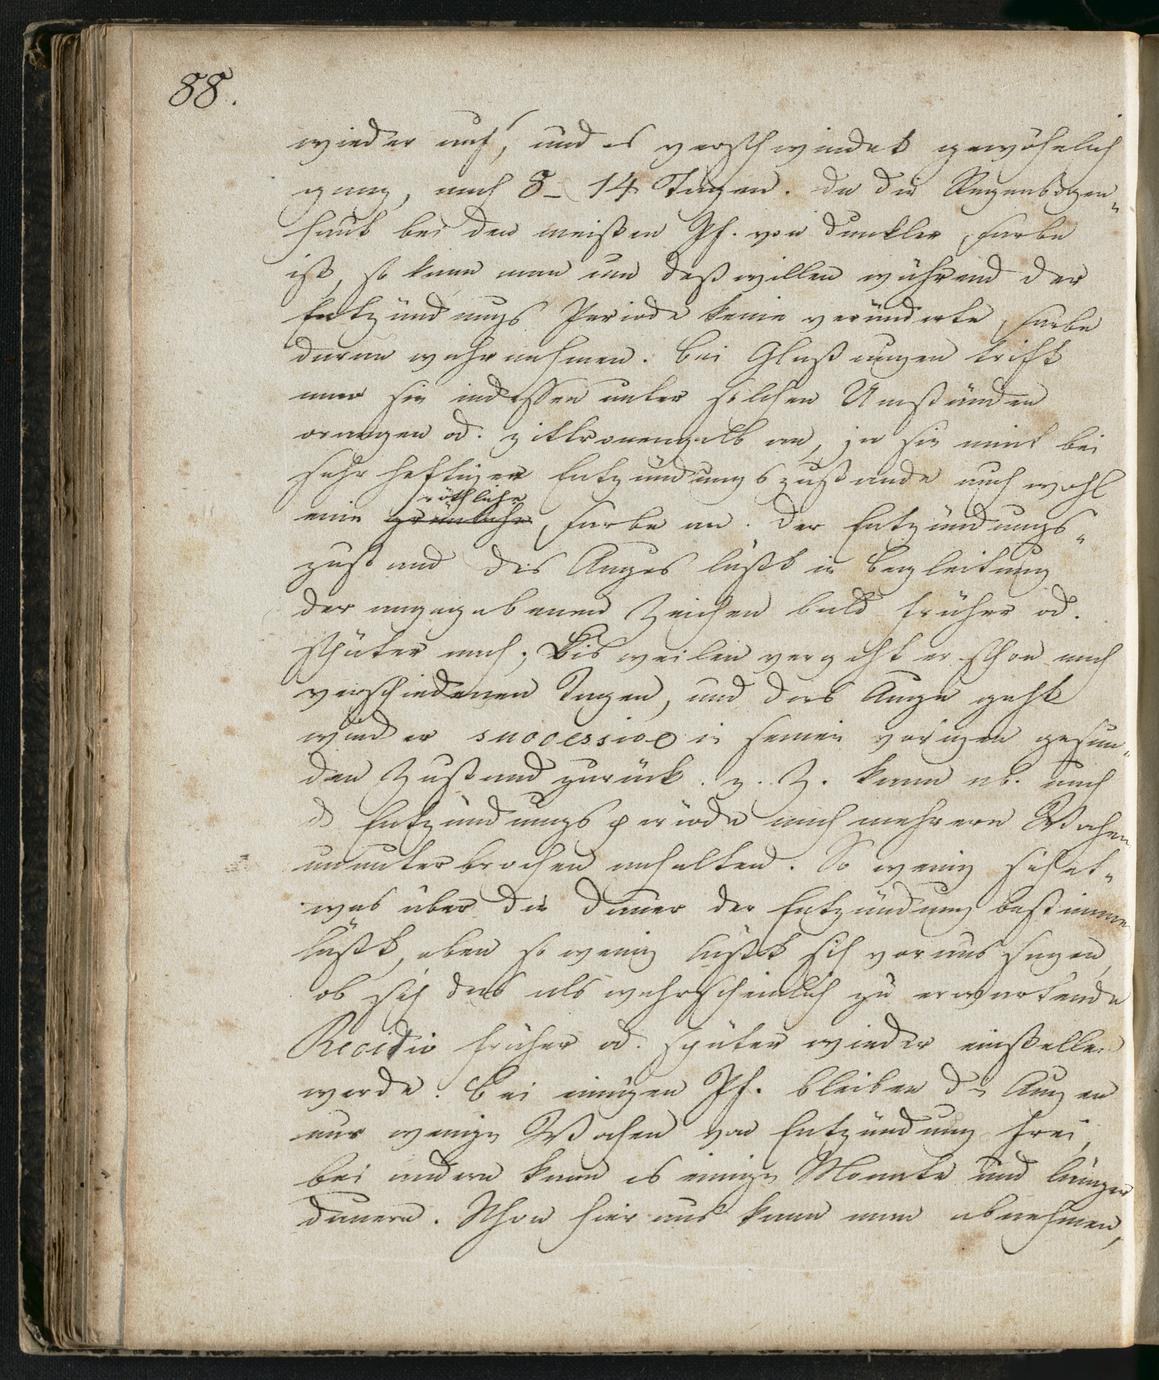 88.
wieder auf, und es verschwindet gewöhnlich
ganz, nach 8-14 Tagen. Da die Regenbogen-
haut bei den meisten Pf. von dunkler Farbe
ist, so kann man um deßwillen während der
Entzündungs Periode keine veränderte Farbe
daran wahrnehmen. Bei Glasaugen trift
man sie indessen unter solchen Umständen
orangen od. zittronengelb an, ja sie nimt bei
sehr heftigen Entzündungszustande auch wohl
röthliche
eine grünliche Farbe an. Der Entzündungs-
zustand des Auges läßt in Begleitung
der angegebenen Zeichen bald früher od.
später nach; Bisweilen vergeht er schon nach
verschiedenen Tagen, und das Auge geht
wieder successive in seinen vorigen gesun-
den Zustand zurück. z. Z. kann ab. auch
d Entzündungsperiode auch mehrere Wochen
ununterbrochen anhalten. So wenig sich et-
was über die Dauer der Entzündung bestimmen
läßt, eben so wenig läßt sich voraus sagen,
ob sich das als wahrscheinlich zu erwartende
Recidiv früher od. später wieder einstellen
werde. Bei einigen Pf. bleiben die Augen
nur wenige Wochen von Entzündung frei,
bei andern kann es einige Monate und länger
dauern. Schon hieraus kann man abnehmen,